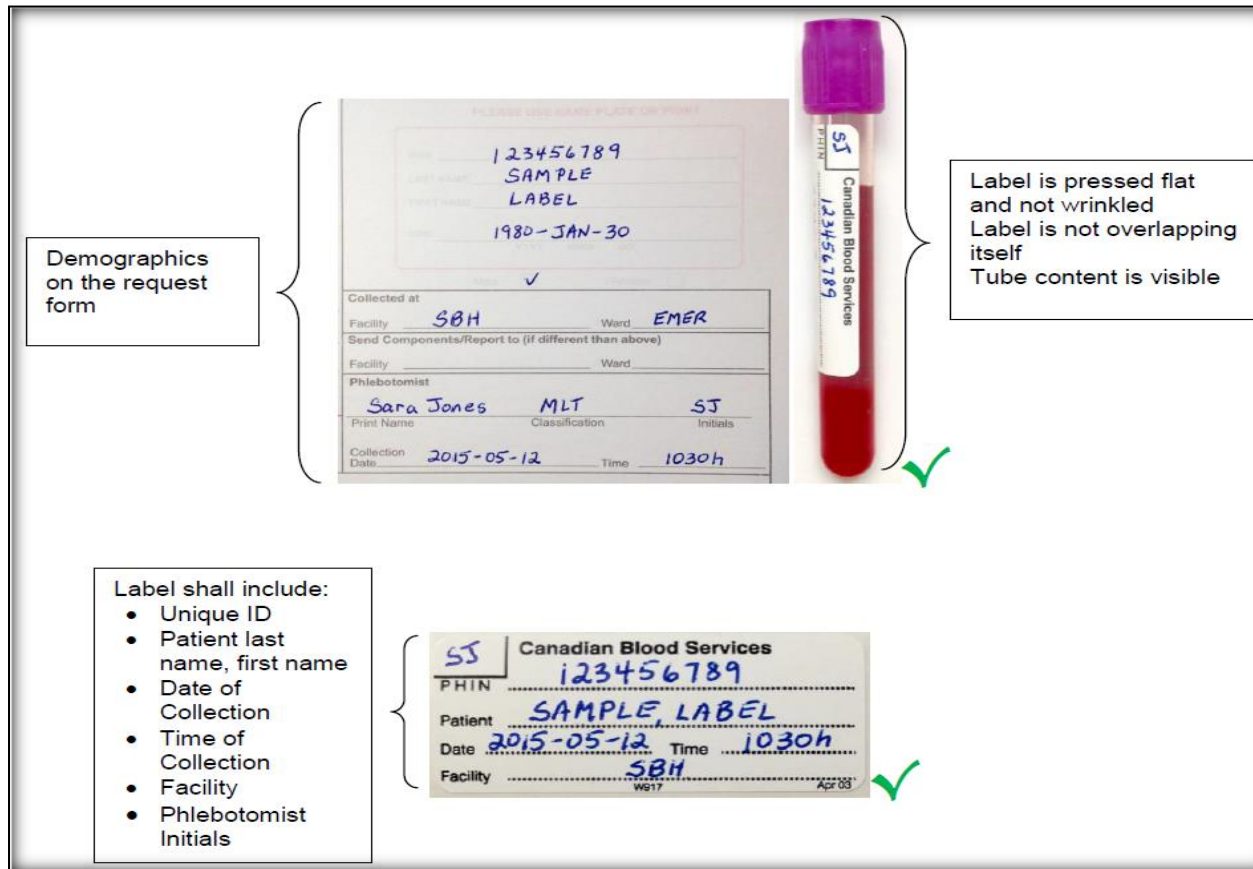 Demographics
on the request
form
PLEASE USE NAME PLATE OR PRINT
123456789
LAST NAME SAMPLE
FIRST NAME LABEL
1980-JAN-30
✓
Collected at
Facility SBH Ward EMER
Send Components/Report to (if different than above)
Facility Ward
Phlebotomist
Sara Jones MLT SJ
Print Name Classification Initials
Collection
Date 2015-05-12 Time 1030h
SJ
PHIN
Canadian Blood Services
123456789
Label is pressed flat
and not wrinkled
Label is not overlapping
itself
Tube content is visible
Label shall include:
• Unique ID
• Patient last
name, first name
• Date of
Collection
• Time of
Collection
• Facility
• Phlebotomist
Initials
SJ Canadian Blood Services
PHIN 123456789
Patient SAMPLE, LABEL
Date 2015-05-12 Time 1030h
Facility SBH
W917 Apr 03